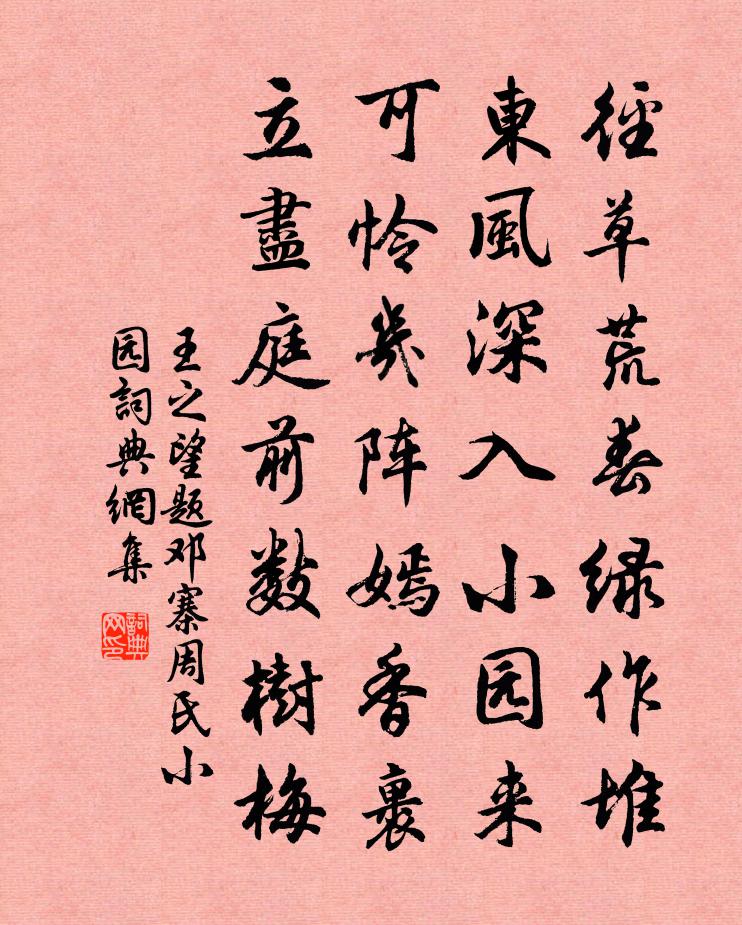 徑草荒春緑作堆
東風深入小园来
可怜幾阵嫣香裹
立盡庭前数樹梅
王之望题邓寨周氏小
园詞典網集
詞典網印